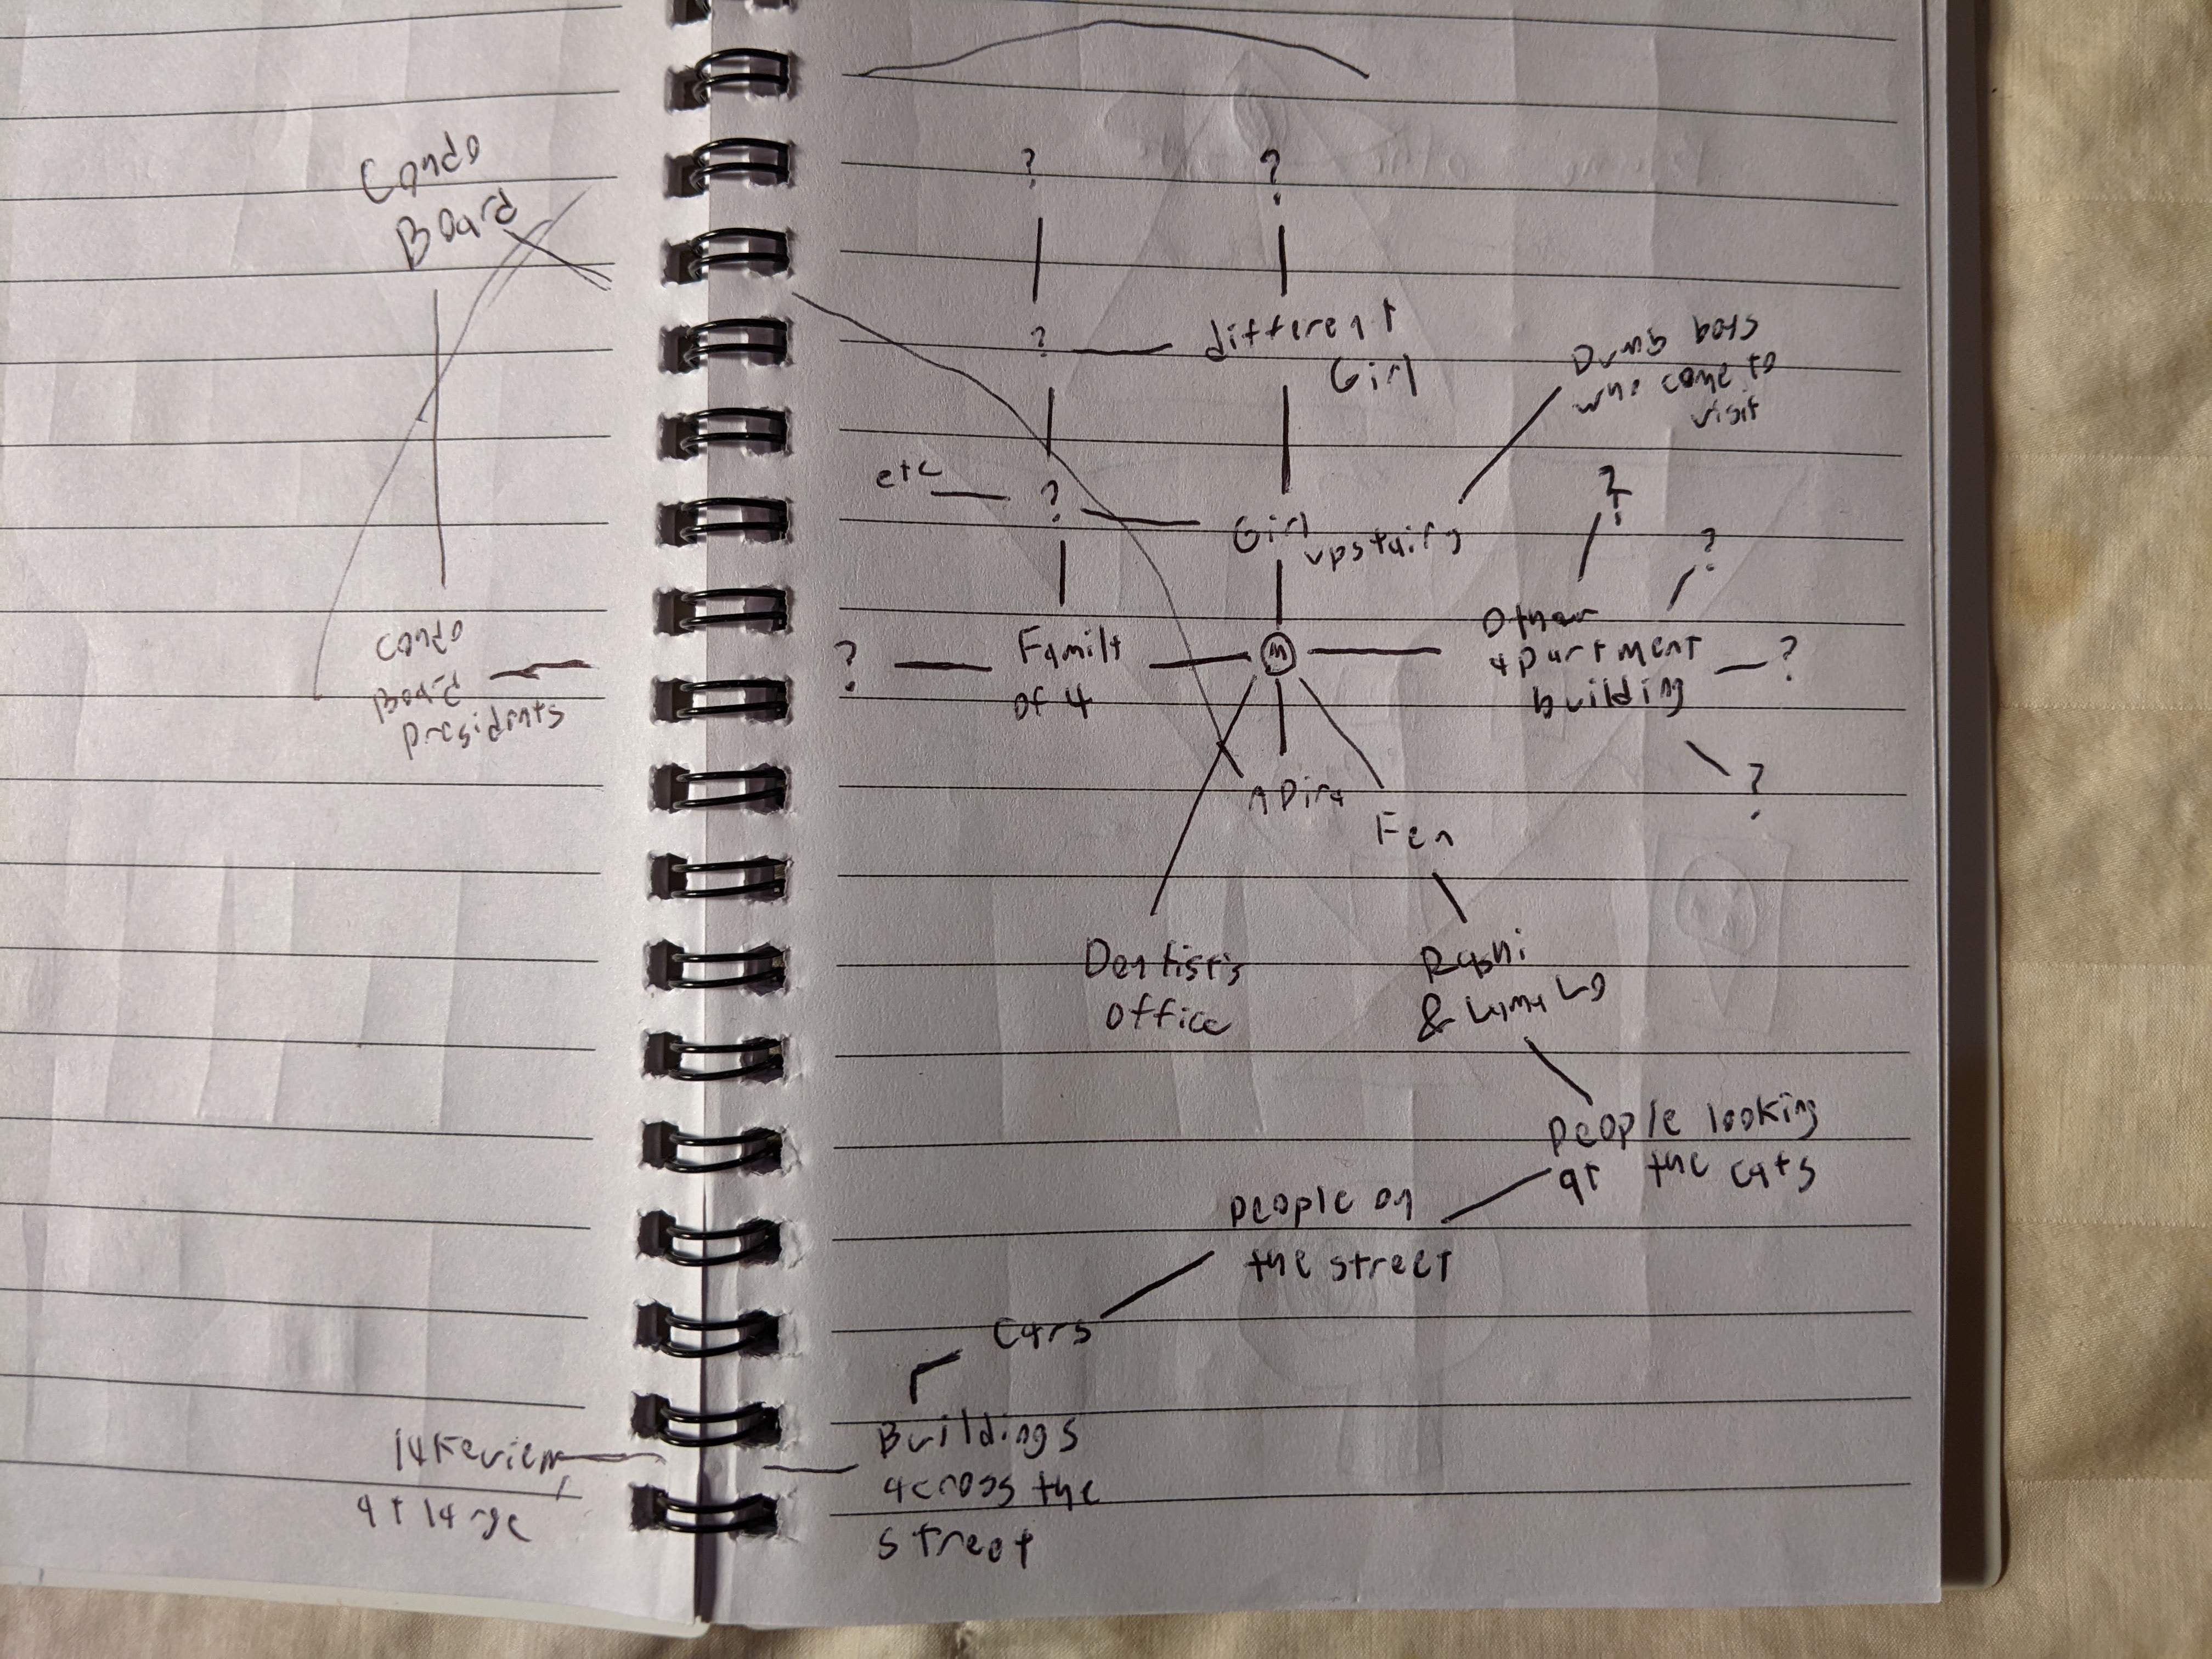 Condo
Board
condo
Board
presidents
lakeview,
at large
?
?
?
different
Girl
Dumb boys
who come to
visit
etc
?
Girl
upstairs
?
?
?
Family
of 4
M
Other
apartment
building
?
?
Adira
Fen
Dentist's
office
Rashi
&
People looking
at the cats
people on
the street
Cars
Buildings
across the
street